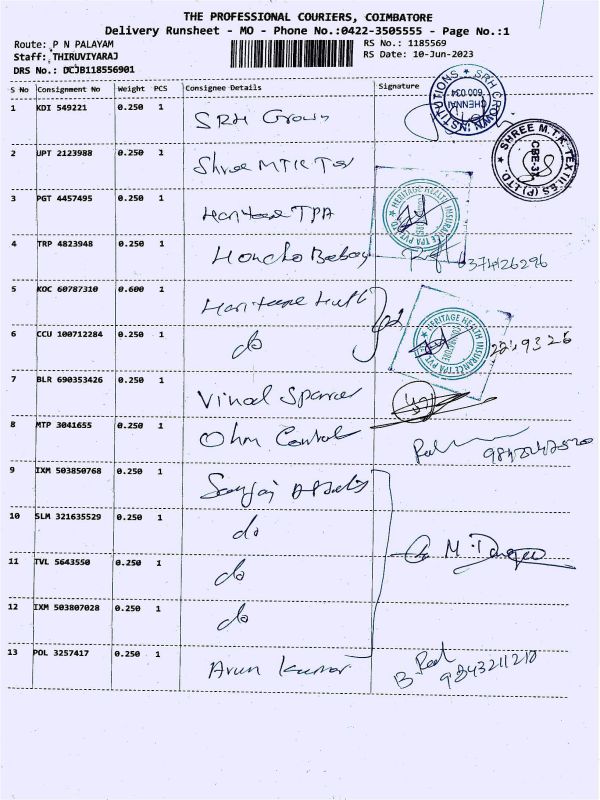 THE PROFESSIONAL COURIERS, COIMBATORE
Delivery Runsheet - MO - Phone No.:0422-3505555 - Page No.:1
Route: P N PALAYAM
RS No.: 1185569
Staff: THIRUVIYARAJ
RS Date: 10-Jun-2023
DRS No.: DCJB118556901
S No Consignment No Weight PCS Consignee Details Signature
1 KDI 549221 0.250 1 SRH Crown
SRH CROWN INSTITUTIONS CHENNAI 600 034
2 UPT 2123988 0.250 1 Shree MTK Tex
SHREE M.T.K. TEXTILES (P) LTD. CBE-37
3 PGT 4457495 0.250 1 Heritage TPA
HERITAGE HEALTH INSURANCE TPA PVT. LTD
4 TRP 4823948 0.250 1 Honcho
5 KOC 60787310 0.600 1 Heritage
HERITAGE HEALTH INSURANCE TPA PVT. LTD
6 CCU 100712284 0.250 1 do
7 BLR 690353426 0.250 1 Vinod
8 MTP 3041655 0.250 1 Ohm Control
9 IXM 503850768 0.250 1 Sanjai
10 SLM 321635529 0.250 1 do
M.
11 TVL 5643550 0.250 1 do
12 IXM 503807028 0.250 1 do
13 POL 3257417 0.250 1 Arun Kumar
B 9843211210